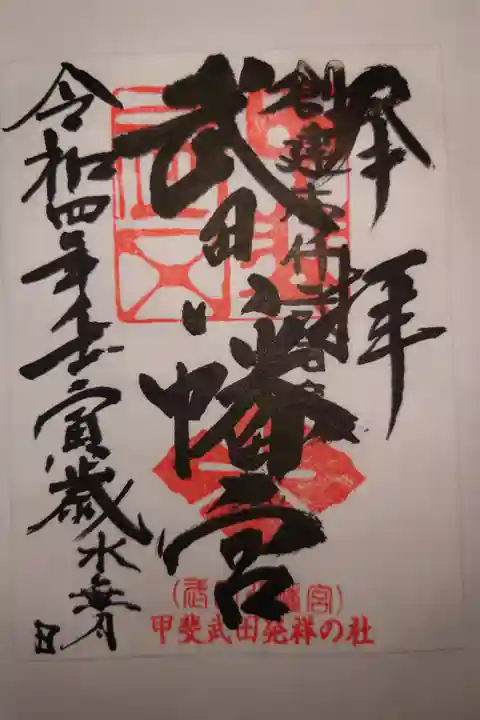 奉拝
武田八幡宮
令和四年壬寅歳水無月
日
(武田八幡宮)
甲斐武田発祥の社